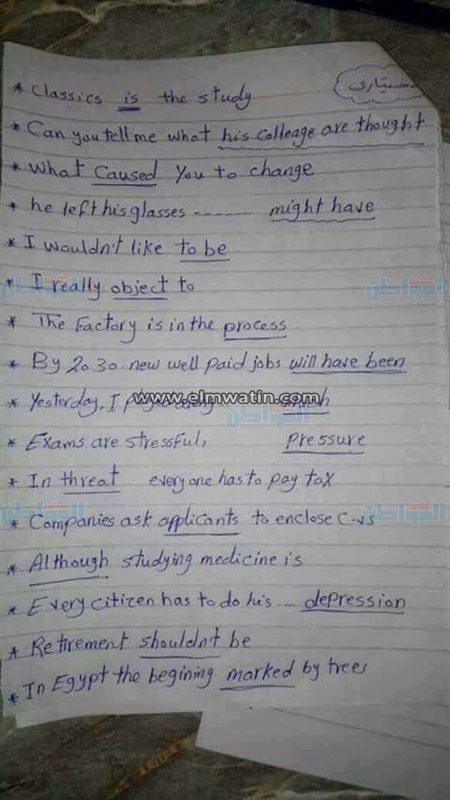 * Classics is the study
* Can you tell me what his colleage are thought
* what caused you to change
* he left his glasses ........ might have
* I wouldn't like to be
* I really object to
* The Factory is in the process
* By 2030 new well paid jobs will have been
* Yesterday, I
www.elmwatin.com
* Exams are stressful, pressure
* In threat every one has to pay tax
* Companies ask applicants to enclose C-vs
* Although studying medicine is
* Every citizen has to do his ... depression
* Retirement shouldn't be
* In Egypt the begining marked by trees
المواطن
المواطن
المواطن
المواطن